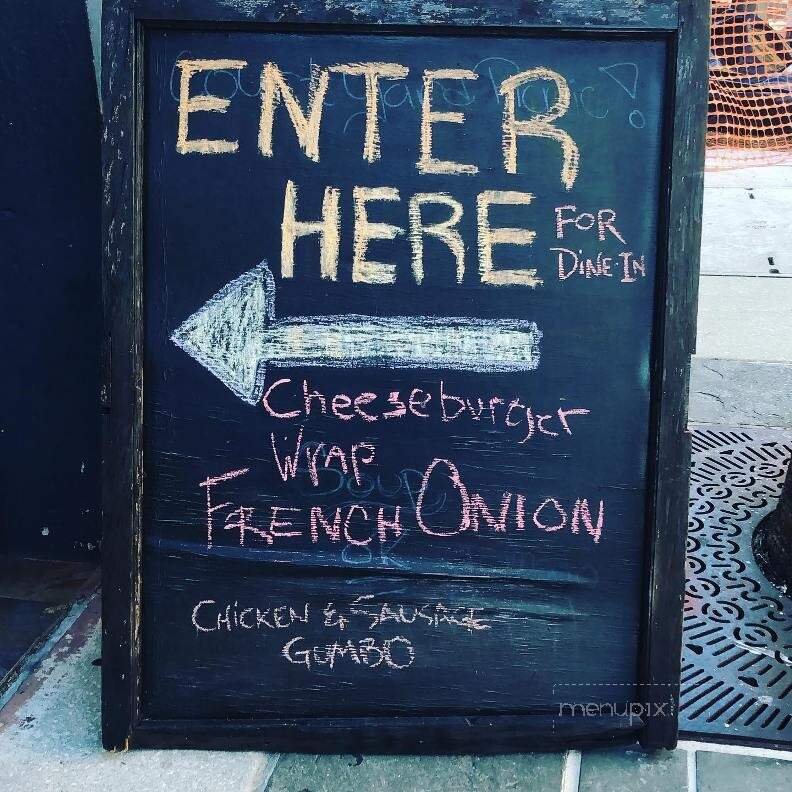 ENTER
HERE
FOR
DINE-IN
Cheeseburger
WRAP
FRENCH ONION
CHICKEN & SAUSAGE
GUMBO
menupix